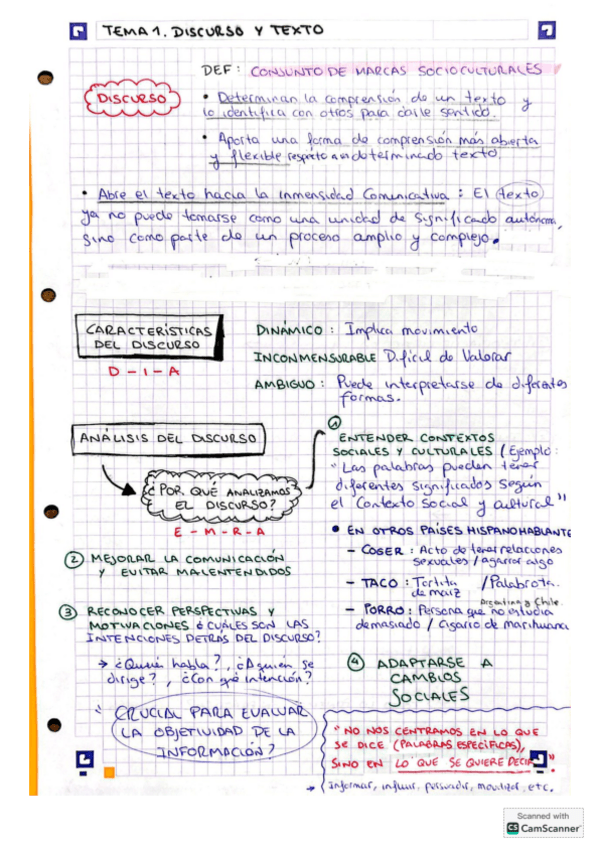 TEMA 1. DISCURSO Y TEXTO
DEF: CONJUNTO DE MARCAS SOCIOCULTURALES
DISCURSO
• Determinan la comprensión de un texto y
lo identifica con otros para darle sentido.
• Aporta una forma de comprensión más abierta
y flexible respecto a un determinado texto.
• Abre el texto hacia la inmensidad comunicativa: El texto
ya no puede tomarse como una unidad de significado autónoma,
sino como parte de un proceso amplio y complejo.
CARACTERÍSTICAS
DEL DISCURSO
D - I - A
DINÁMICO: Implica movimiento
INCONMENSURABLE Difícil de Valorar
AMBIGUO: Puede interpretarse de diferentes
formas.
ANÁLISIS DEL DISCURSO
¿POR QUÉ ANALIZAMOS
EL DISCURSO?
E - M - R - A
1
ENTENDER CONTEXTOS
SOCIALES Y CULTURALES (Ejemplo:
"Las palabras pueden tener
diferentes significados según
el contexto social y cultural"
• EN OTROS PAÍSES HISPANOHABLANTE
- COGER: Acto de tener relaciones
sexuales / agarrar algo
- TACO: Tortita / Palabrota.
de maíz
Argentina y Chile.
- PORRO: Persona que no estudia
demasiado / Cigarro de marihuana
2 MEJORAR LA COMUNICACIÓN
Y EVITAR MALENTENDIDOS
3 RECONOCER PERSPECTIVAS Y
MOTIVACIONES ¿CUÁLES SON LAS
INTENCIONES DETRÁS DEL DISCURSO?
→ ¿Quién habla?, ¿A quién se
dirige?, ¿Con qué intención?
"CRUCIAL PARA EVALUAR
LA OBJETIVIDAD DE LA
INFORMACIÓN?
4 ADAPTARSE A
CAMBIOS
SOCIALES
"NO NOS CENTRAMOS EN LO QUE
SE DICE (PALABRAS ESPECÍFICAS),
SINO EN LO QUE SE QUIERE DECIR".
→ (Informar, influir, persuadir, movilizar, etc.
Scanned with
CS CamScanner